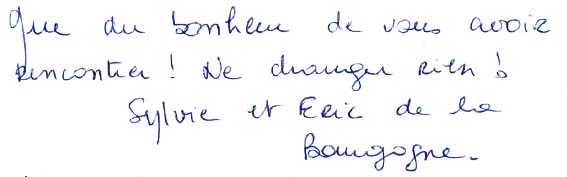 que du bonheur de vous avoir
rencontrer ! Ne changer rien !
Sylvie et Eric de la
Bourgogne.